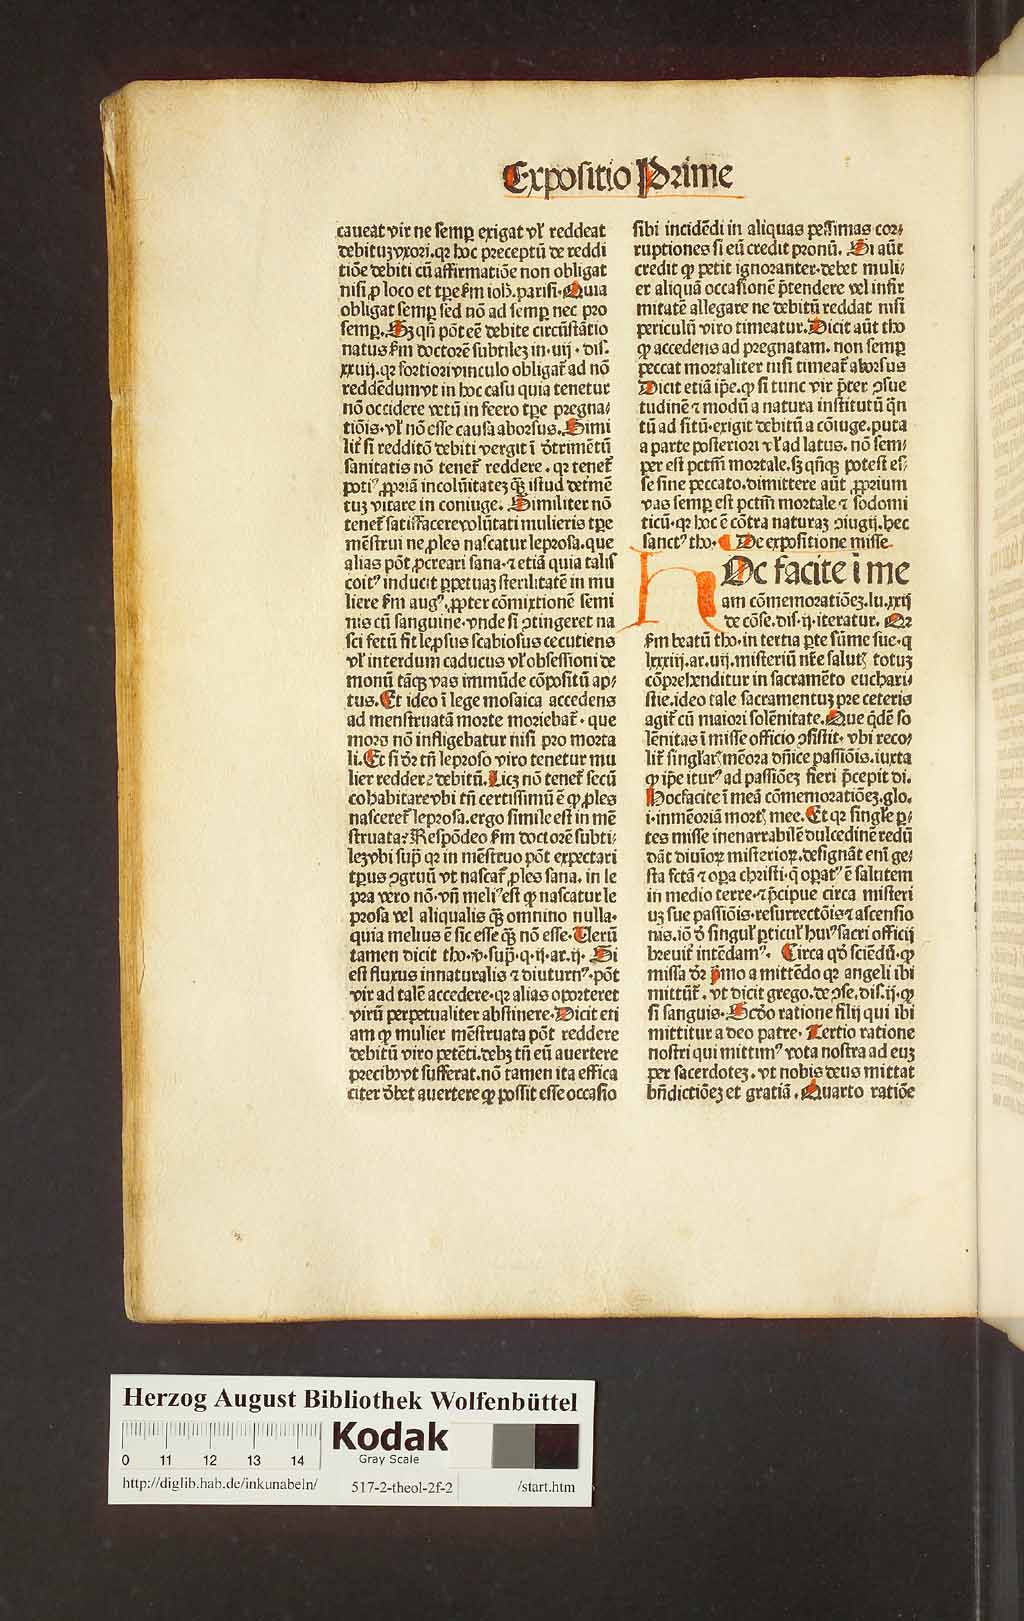 Expositio Prime
caueat vir ne semꝑ exigat vl᷑ reddeat
debituꝫ vxori. qꝛ hoc preceptū de reddi
tiōe debiti cū affirmatiōe non obligat
nisi ꝓ loco et tꝑe ẜm ioh̄. parisi. Quia
obligat semꝑ sed nō ad semꝑ nec pro
semꝑ. Sꝫ qn̄ pōt eē debite circūstātio
natus ẜm doctorē subtileꝫ in. iiij. dis.
xxxiij. qꝛ fortiori vinculo obligat᷑ ad nō
reddēdum vt in hoc casu quia tenetur
nō occidere vetū in feero tꝑe pregna⸗
tiōis. vl᷑ nō esse causa aborsus. Simi
lit᷑ si redditō debiti vergit ī dͥtrimētū
sanitatis nō tenet᷑ reddere. qꝛ tenet᷑
potiꝰ ꝓpriā incolūitateꝫ qꝫ̄ istud detmē
tuꝫ vitare in coniuge. Similiter nō
tenet᷑ satisfacere volūtati mulieris tꝑe
mēstrui ne ꝓles nascatur leprosa. que
alias pōt ꝓcreari sana. ⁊ etiā quia talis
coitꝰ inducit ꝑpetuaꝫ sterilitatē in mu
liere ẜm augꝰ. ꝓpter cōmixtionē semi
nis cū sanguine. vnde si ↄtingeret na
sci fetū fit leprsus scabiosus cecutiens
vl᷑ interdum caducus vl᷑ obsessioni de
monū tāqꝫ vas immūde cōpositū ap⸗
tus. Et ideo ī lege mosaica accedens
ad menstruatā morte moriebat᷑. que
mors nō infligebatur nisi pro morta
li. Et si dr̄ tn̄ leproso viro tenetur mu
lier reddere debitū. Licꝫ nō tenet᷑ secū
cohabitare vbi tn̄ certissimū ē ꝙ ꝓles
nasceret᷑ leprosa. ergo simile est in mē
struata? Respōdeo ẜm doctorē subti⸗
leꝫ vbi supͣ qꝛ in mēstruo pōt expectari
tꝑus ↄgruū vt nascat᷑ ꝓles sana. in le
pra vero nō. vn̄ meliꝰ est ꝙ nascatur le
prosa vel aliqualis qꝫ̄ omnino nulla.
quia melius ē sic esse qꝫ̄ nō esse. Uerū
tamen dicit tho. v. supͣ. q. ij. ar. ij. Si
est fluxus innaturalis ⁊ diuturnꝰ. pōt
vir ad talē accedere. qꝛ alias oporteret
virū perpetualiter abstinere. Dicit eti
am ꝙ mulier mēstruata pōt reddere
debitū viro petēti. debꝫ tn̄ eū auertere
precibꝰ vt sufferat. nō tamen ita effica
citer dͥbet auertere ꝙ possit esse occasio
sibi incidēdi in aliquas pessimas cor⸗
ruptiones si eū credit pronū. Si aūt
credit ꝙ petit ignoranter. debet muli⸗
er aliquā occasionē p̄tendere vel infir
mitatē allegare ne debitū reddat nisi
periculū viro timeatur. Dicit aūt tho
ꝙ accedens ad pregnatam. non semꝑ
peccat mortaliter nisi timeat᷑ aborsus
Dicit etiā ip̄e. ꝙ si tunc vir p̄ter ↄsue
tudinē ⁊ modū a natura institutū qͣn
tū ad sitū. exigit debitū a cōiuge. puta
a parte posteriori vl᷑ ad latus. nō sem⸗
per est pctm̄ mortale. sꝫ qn̄qꝫ potest es⸗
se sine peccato. dimittere aūt ꝓprium
vas semꝑ est pctm̄ mortale ⁊ sodomi
ticū. qꝛ hoc ē cōtra naturaꝫ ↄiugij. hec
sanctꝰ tho. ¶ De expositione misse
HOc facite ī me
am cōmemoratiōeꝫ. lu. xxij
de cōse. dis. ij. iteratur. Qꝛ
ẜm beatū tho. in tertia ꝑte sūme sue. q
lxxxiij. ar. iiij. misteriū nr̄e salutꝭ totuꝫ
cōprehenditur in sacramēto euchari⸗
stie. ideo tale sacramentuꝫ pre ceteris
agit᷑ cū maiori solēnitate. Que qͥdē so
lēnitas ī misse officio ↄsistit. vbi reco⸗
lit᷑ singl᷑arꝭ mēora dn̄ice passiōis. iuxta
ꝙ ip̄e iturꝰ ad passiōeꝫ fieri p̄cepit di.
Hoc facite ī meā cōmemoratiōeꝫ. glo.
i. in mēoriā mortꝭ mee. Et qꝛ singl᷑e ꝑ⸗
tes misse inenarrabilē dulcedinē redū
dāt diuioꝝ misterioꝝ. designāt eni ge⸗
sta sctā ⁊ oꝑa christi. q̄ oꝑatꝰ ē salutem
in medio terre. ⁊ p̄cipue circa misteri
uꝫ sue passiōis. resurrectōis ⁊ ascensio
nis. iō dͥ singul᷑ ꝑticul᷑ huiꝰ sacri officij
breuit᷑ intēdamꝰ. Circa qd̄ sciēdū. ꝙ
missa dr̄ pͥmo a mittēdo qꝛ angeli ibi
mittūt᷑. vt dicit grego. de ↄse. dis. ij. ꝙ
si sanguis. Scd̄o ratione filij qui ibi
mittitur a deo patre. Tertio ratione
nostri qui mittimꝰ vota nostra ad euꝫ
per sacerdoteꝫ. vt nobis deus mittat
bn̄dictiōeꝫ et gratiā. Quarto ratiōe
Herzog August Bibliothek Wolfenbüttel
0 11 12 13 14
Kodak
Gray Scale
http://diglib.hab.de/inkunabeln/ 517-2-theol-2f-2 /start.htm